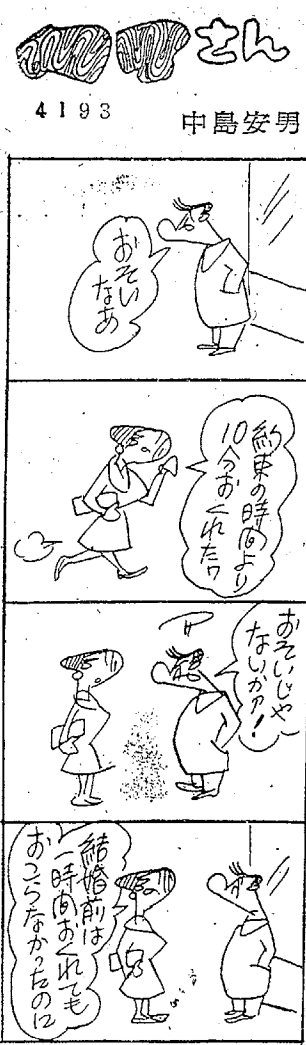 さん
4193
中島安男
おそい
なあ
約束の時間より
10分おくれたワ
おそいじゃ
ないかァ!
結婚前は
一時間おくれても
おこらなかったのに